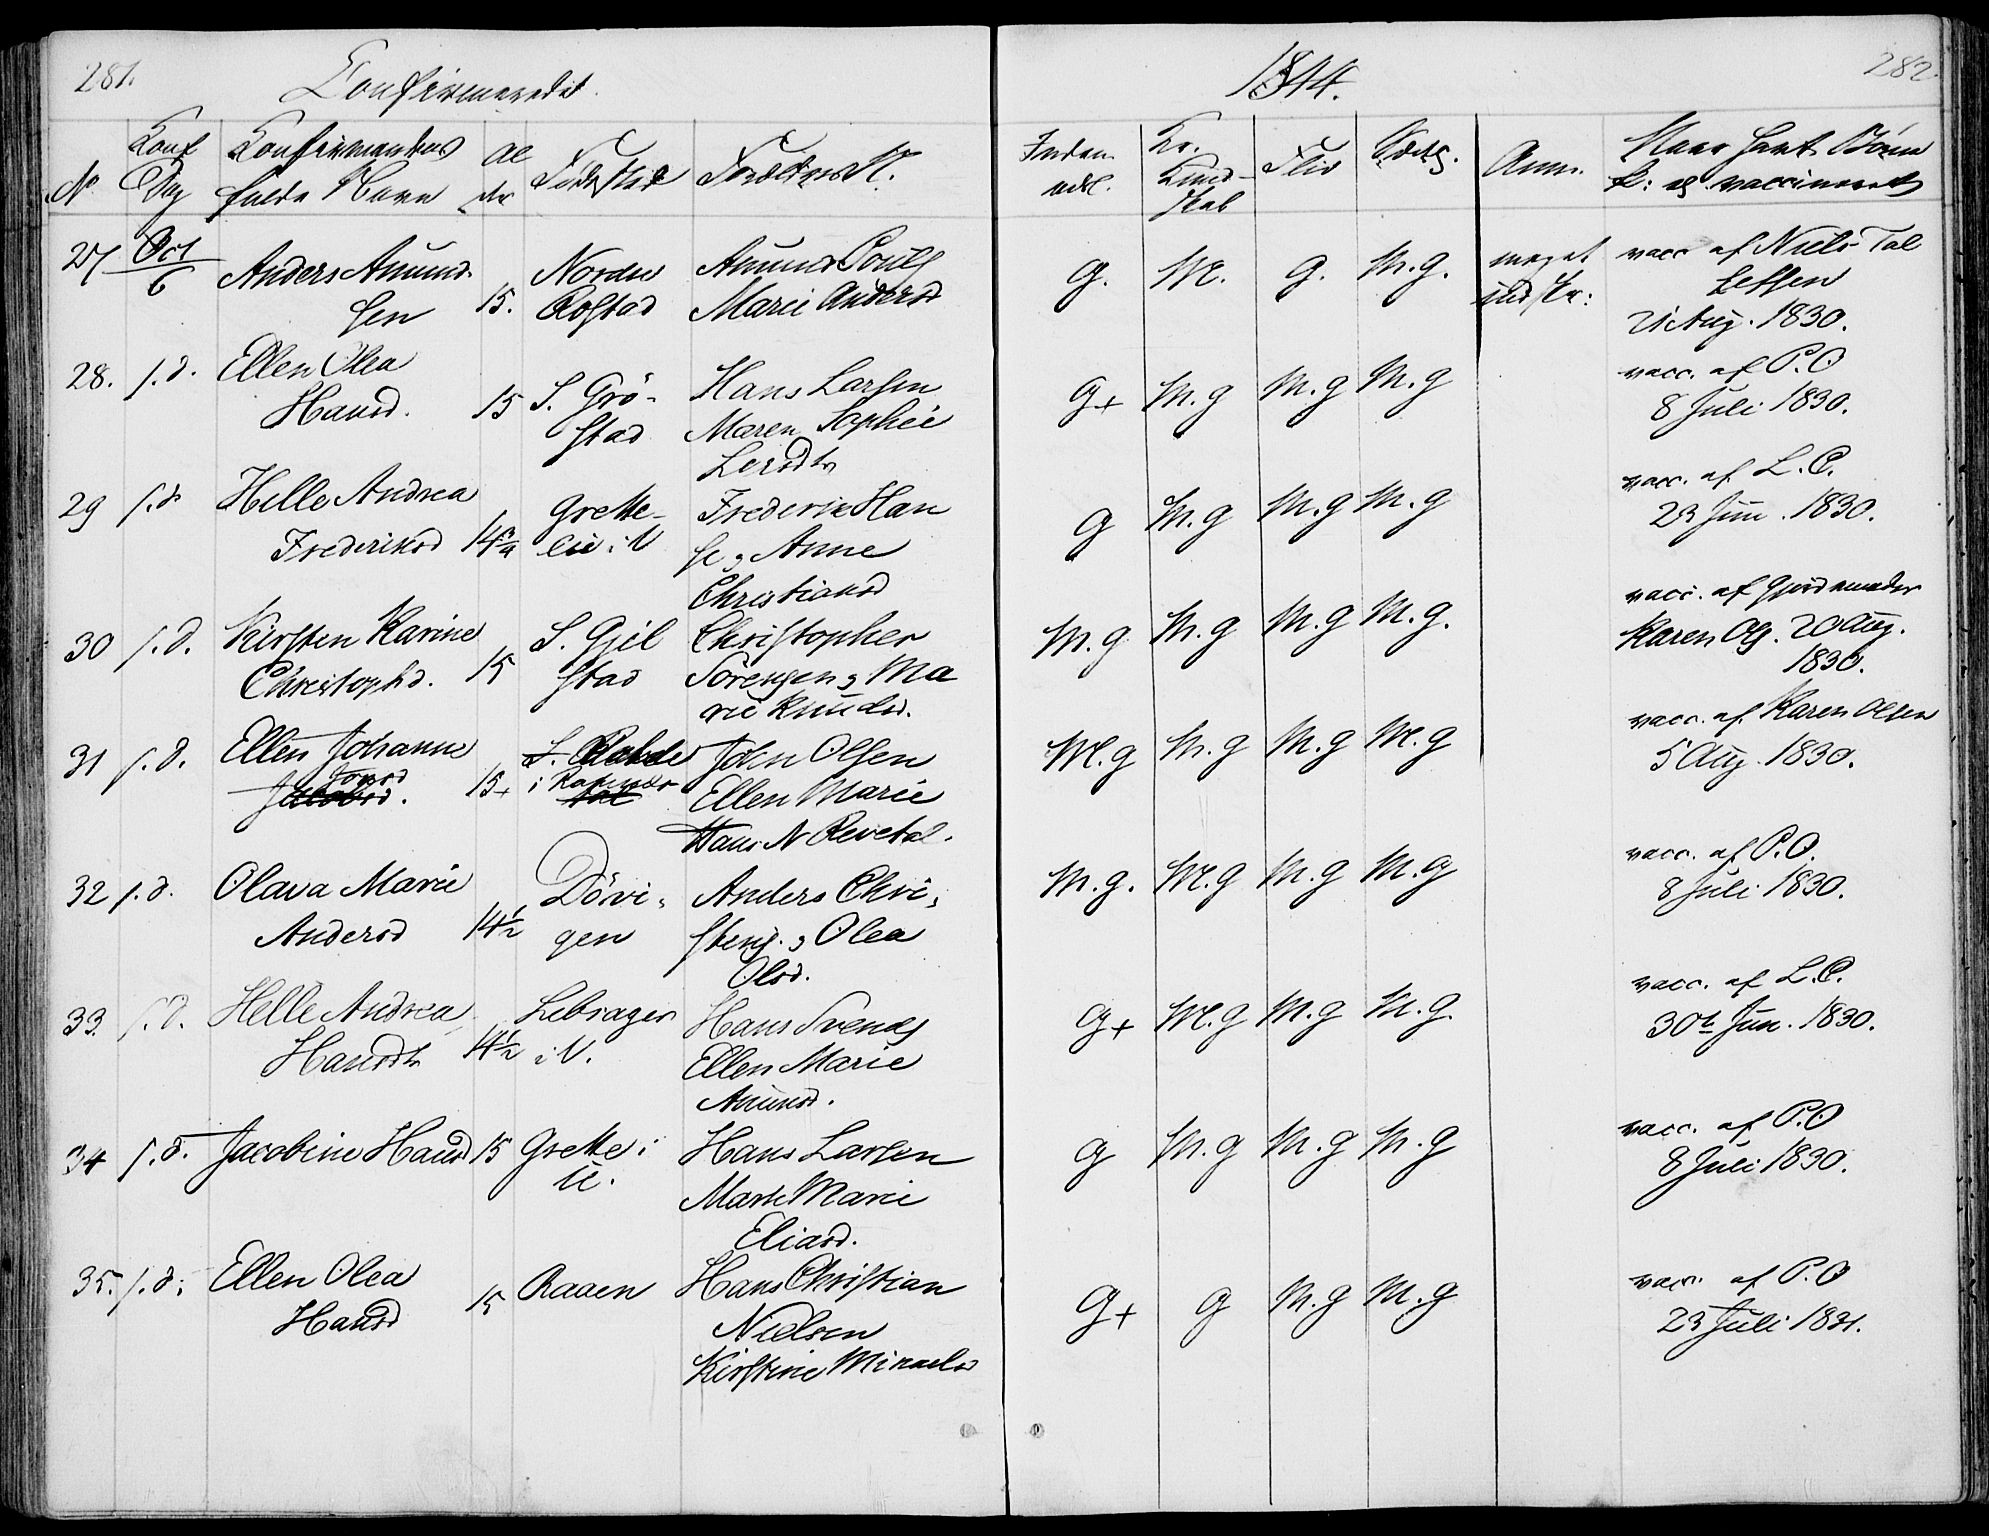 281.
Confirmerede
1844.
282.
N. Conf Dag Confirmandens fulde Navn Alder Fødested Forældres N.
Inden ad L. Kr. Kundskab Flid Sædel. Anm.
27 Oct 6 Anders Amundsen 15. Nordre Rostad Amund Pouls Marie Andersd
G. M. G. M.g. meget vacc af Niels Tollefsen 21 Aug. 1830.
28. s.d. Ellen Olea Hansd. 15 S. Gröstad Hans Larsen Maren Sophie Larsdtr
G+ M.g M.g M.g vacc. af P.O 8 Juli 1830.
29 s.d. Helle Andrea Frederiksd Grette i V Frederik Hanse, Anne Christiansd
G M.g M.g M.g vacc. af L.C. 23 Juni. 1830.
30 s.d. Kirsten Karine Christophd. 15 S. Gjelstad Christopher Sörensen, Marie Knudsd.
M.g M.g M.g M.g. vacc. af Gjordemoder Karen Ols. 20 Aug. 1830.
31 s.d. Ellen Johanne Jonsd Jacobsd. 15+ John Olsen Ellen Marie Hans N Revetal.
M.g M.g M.g M.g vacc. af Karen Olsen 5 Aug. 1830.
32 s.d. Olava Marie Andersd 14½ Dövigen Anders Christens., Olea Olsd.
M.g. M.g M.g M.g vacc. af P.O. 8 Juli 1830.
33. s.d. Helle Andrea Hansdtr 14½ i V. Hans Svends Ellen Marie Amunsd.
G+ M.g M.g M.g. vacc. af L.C. 30t Jun. 1830.
34 s.d. Jacobine Hansd 15 Grette i U. Hans Larsen Marte Marie Eliasd.
G M.g M.g M.g vacc. af P.O 8 Juli 1830.
35. s.d. Ellen Olea Hansd 15 Raaen Hans Christian Nielsen Kirstine Mikaelsd
G+ G M.g M.g vacc. af P.O 23 Juli 1831.